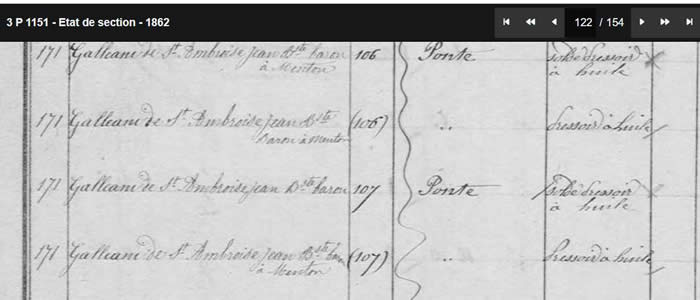 3 P 1151 - Etat de section - 1862
122 / 154
171 Galleani de St. Ambroise jean Bte baron 106 Ponte sol de pressoir
à Menton à huile
171 Galleani de St. Ambroise jean Bte (106) .. pressoir à huile
baron à Menton
171 Galleani de St. Ambroise jean Bte baron 107 Ponte sol de pressoir
à huile
171 Galleani de St. Ambroise jean Bte bon (107) .. pressoir à huile
à Menton